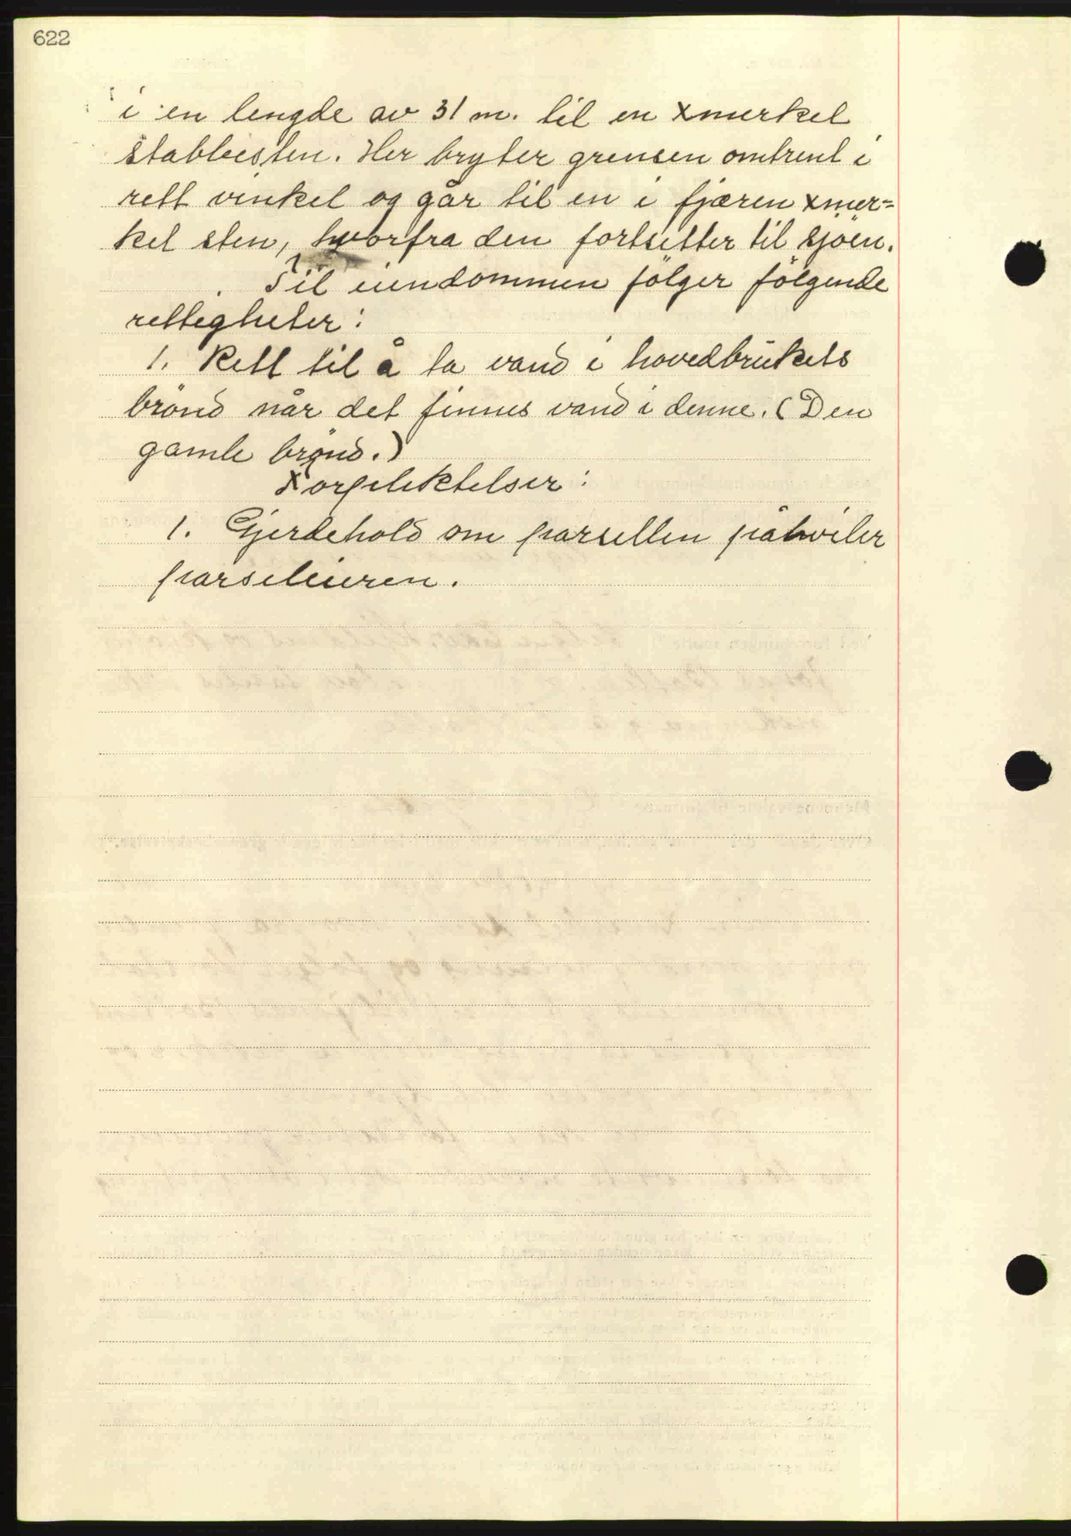 622
i en lengde av 31 m. til en xmerket
stabbesten. Her bryter grensen omtrent i
rett vinkel og går til en i fjæren xmer=
ket sten, hvorfra den fortsetter til sjöen.
Til eiendommen fölger fölgende
rettigheter:
1. Rett til å ta vand i hovedbrukets
brönd når det finnes vand i denne. (Den
gamle brönd.)
Forpliktelser:
1. Gjerdehold om parsellen påhviler
parseleieren.